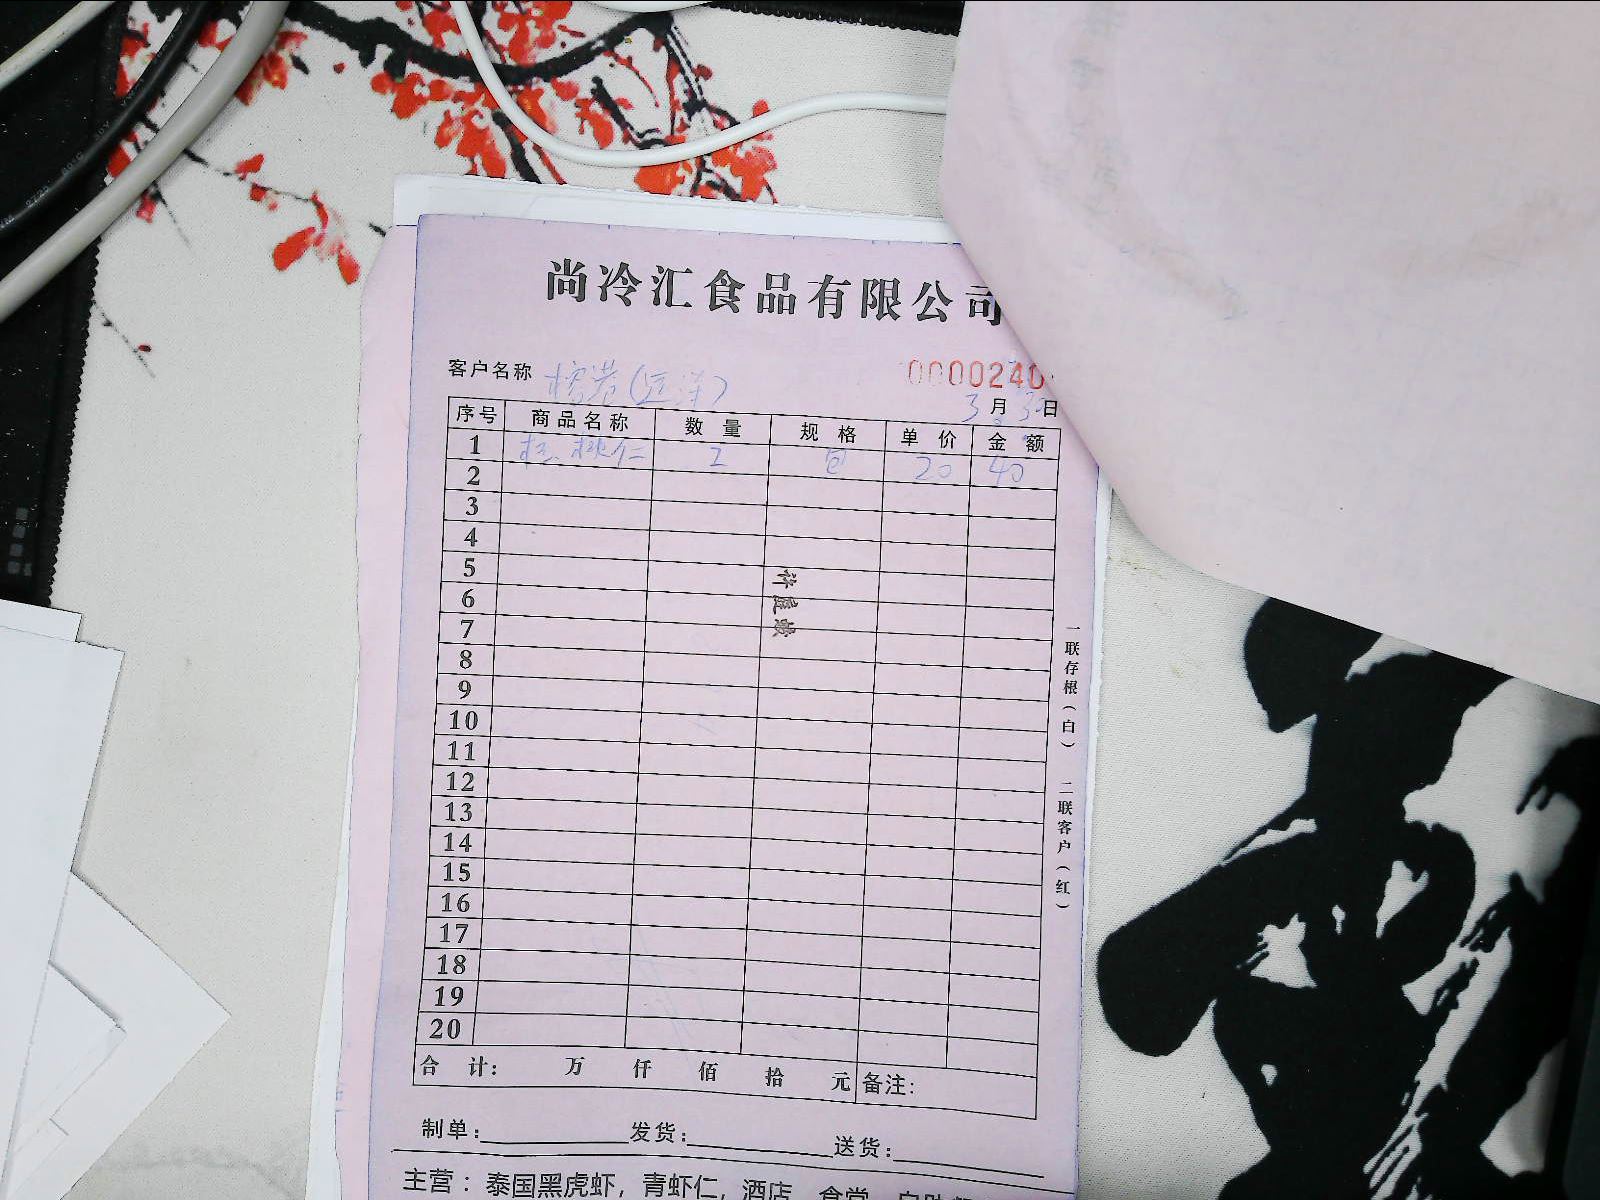 尚冷汇食品有限公司
客户名称 榕港(远洋) 0000240
3月30日
序号 商品名称 数量 规格 单价 金额
1 核桃仁 2 包 20 40
2
3
4
5
6
7
8
9
10
11
12
13
14
15
16
17
18
19
20
合计: 万 仟 佰 拾 元 备注:
制单: 发货: 送货:
主营：泰国黑虎虾，青虾仁，酒店、食堂、自助
一联存根（白） 二联客户（红）